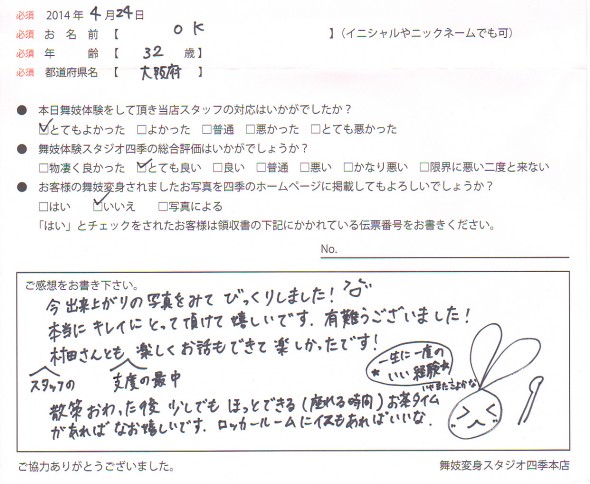 必須 2014年 4月 24日
必須 お 名 前 【 O K 】(イニシャルやニックネームでも可)
必須 年 齢 【 32 歳】
必須 都道府県名 【 大阪府 】
● 本日舞妓体験をして頂き当店スタッフの対応はいかがでしたか?
☑とてもよかった □よかった □普通 □悪かった □とても悪かった
● 舞妓体験スタジオ四季の総合評価はいかがでしょうか?
□物凄く良かった ☑とても良い □良い □普通 □悪い □かなり悪い □限界に悪い二度と来ない
● お客様の舞妓変身されましたお写真を四季のホームページに掲載してもよろしいでしょうか?
□はい ☑いいえ □写真による
「はい」とチェックをされたお客様は領収書の下記にかかれている伝票番号をお書きください。
No.
ご感想をお書き下さい。
今出来上がりの写真をみて びっくりしました!
本当に キレイに とって頂けて 嬉しいです. 有難うございました!
村田さんとも 楽しくお話もできて 楽しかったです!
スタッフの 支度の最中
一生に一度の
いい経験
散策おわった後 少しでも ほっとできる(座れる時間)お茶タイム
があれば なお嬉しいです. ロッカールームにイスもあればいいな.
ご協力ありがとうございました。
舞妓変身スタジオ四季本店